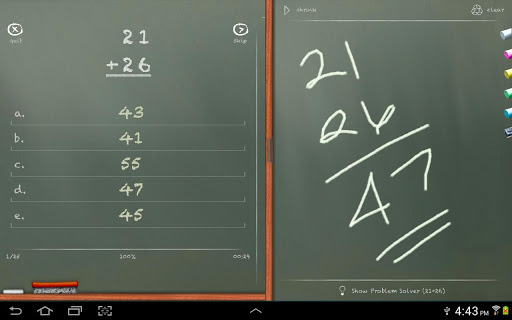 quit
skip
21
+26
a. 43
b. 41
c. 55
d. 47
e. 45
1/25
100%
00:24
shrink
clear
21
26
47
Show Problem Solver (21+26)
4:43 PM